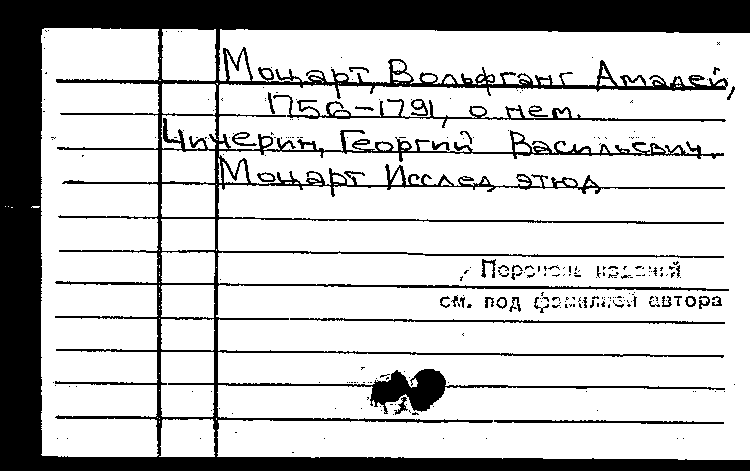 Моцарт, Вольфганг Амадей,
1756-1791, о нем.
Чичерин, Георгий Васильевич.
Моцарт Исслед этюд
Перечень изданий
см. под фамилией автора